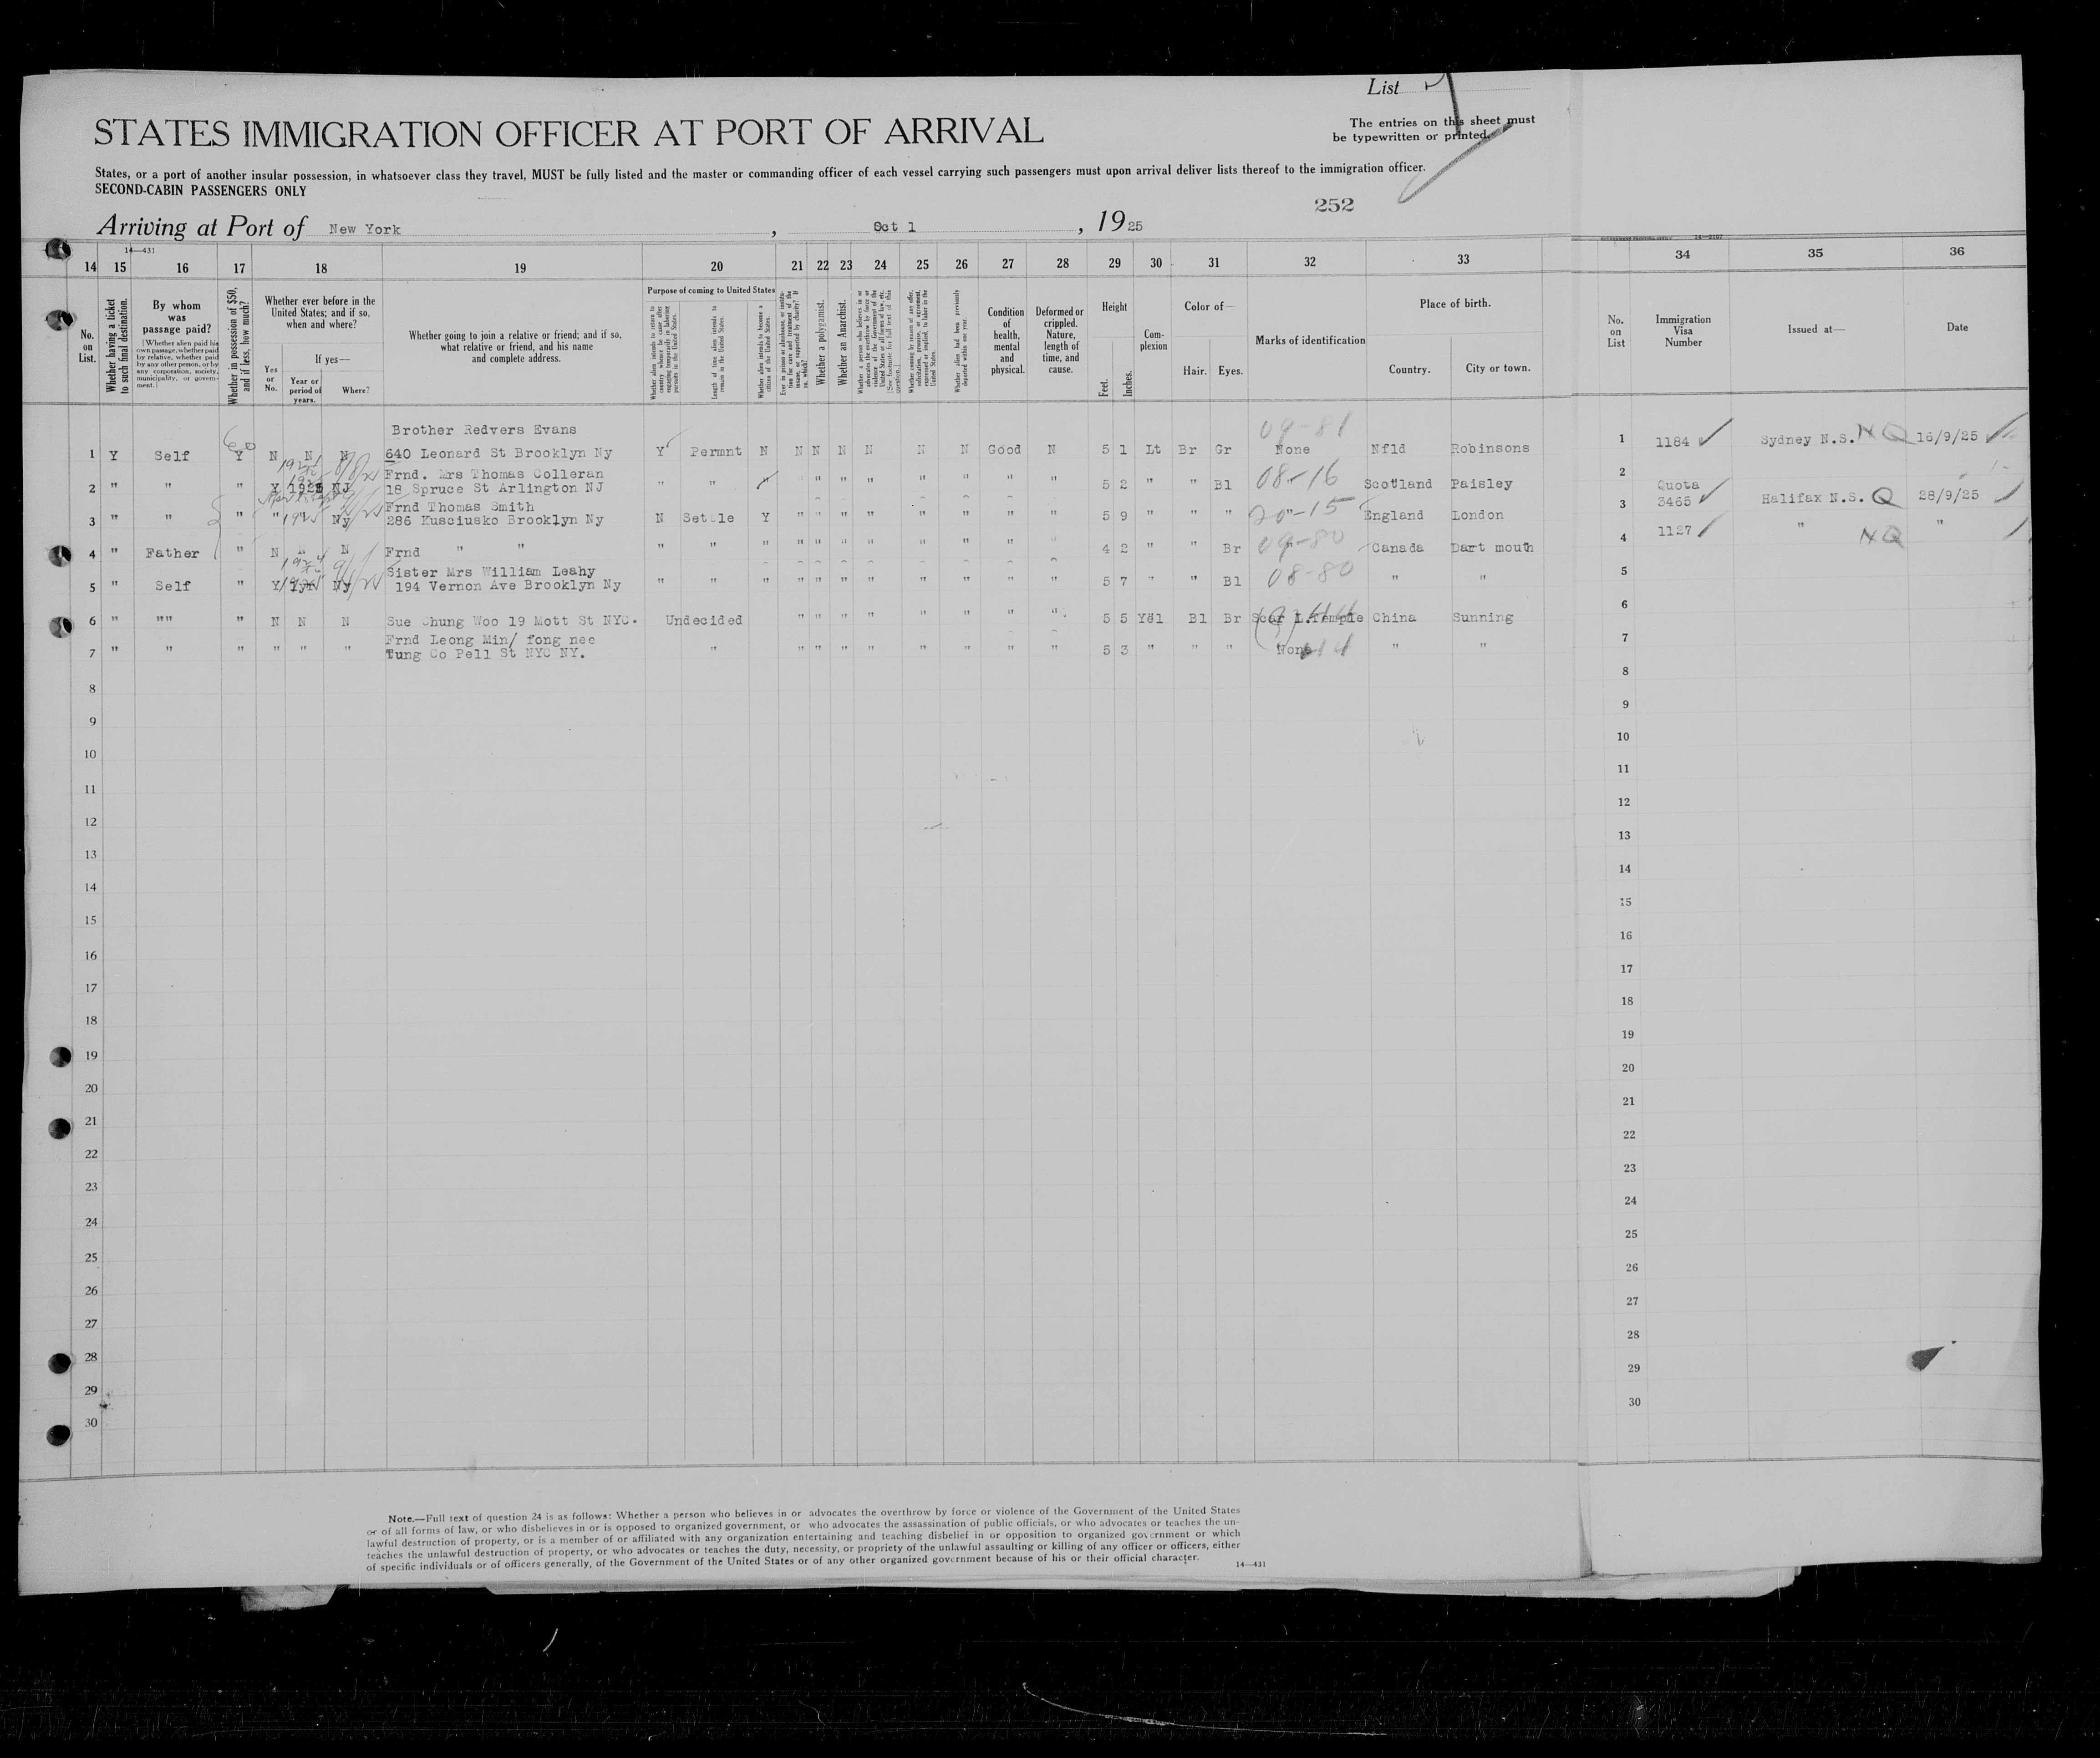 List
STATES IMMIGRATION OFFICER AT PORT OF ARRIVAL
The entries on this sheet must
be typewritten or printed.
States, or a port of another insular possession, in whatsoever class they travel, MUST be fully listed and the master or commanding officer of each vessel carrying such passengers must upon arrival deliver lists thereof to the immigration officer.
SECOND-CABIN PASSENGERS ONLY
252
Arriving at Port of New York, Oct 1, 1925
14—431
14 15 16 17 18 19 20 21 22 23 24 25 26 27 28 29 30 31 32 33 34 35 36
No. on List.
Whether having a ticket to such final destination.
By whom was passage paid?
[Whether alien paid his own passage, whether paid by relative, whether paid by any other person, or by any corporation, society, municipality, or government.]
Whether in possession of $50, and if less, how much?
Whether ever before in the United States; and if so, when and where?
Yes or No.
If yes—
Year or period of years.
Where?
Whether going to join a relative or friend; and if so, what relative or friend, and his name and complete address.
Purpose of coming to United States
Whether alien intends to return to country whence he came after engaging temporarily in laboring pursuits in the United States.
Length of time alien intends to remain in the United States.
Whether alien intends to become a citizen of the United States.
Whether a polygamist.
Whether an Anarchist.
Condition of health, mental and physical.
Deformed or crippled. Nature, length of time, and cause.
Height
Feet. Inches.
Complexion
Color of—
Hair. Eyes.
Marks of identification
Place of birth.
Country. City or town.
No. on List
Immigration Visa Number
Issued at—
Date
Brother Redvers Evans
1 Y Self Y N N N 640 Leonard St Brooklyn Ny Y Permnt N N N N N N N Good N 5 1 Lt Br Gr None Nfld Robinsons 1 1184 Sydney N.S. NQ 16/9/25
60
09-81
Frnd. Mrs Thomas Colleran
2 " " " Y NJ 18 Spruce St Arlington NJ " " " " " " " " " " " 5 2 " " Bl 08-16 Scotland Paisley 2
Frnd Thomas Smith
3 " " " " 1925 Ny 286 Kusciusko Brooklyn Ny N Settle Y " " " " " " " " 5 9 " " " 20-15 England London 3 Quota 3465 Halifax N.S. Q 28/9/25
4 " Father " N N N Frnd " " " " " " " " " " " " " 4 2 " " Br 09-80 Canada Dart mouth 4 1127 " NQ "
Sister Mrs William Leahy
5 " Self " Y Ny 194 Vernon Ave Brooklyn Ny " " " " " " " " " " " 5 7 " " Bl 08-80 " " 5
6 " "" " N N N Sue Chung Woo 19 Mott St NYC. Undecided " " " " " " " " 5 5 Yel Bl Br Scar L.Temple China Sunning 6
Frnd Leong Min/ fong nee
7 " " " " " " Tung Co Pell St NYC NY. " " " " " " " " " 5 3 " " " None " " 7
8 8
9 9
10 10
11 11
12 12
13 13
14 14
15 15
16 16
17 17
18 18
19 19
20 20
21 21
22 22
23 23
24 24
25 25
26 26
27 27
28 28
29 29
30 30
Note.—Full text of question 24 is as follows: Whether a person who believes in or advocates the overthrow by force or violence of the Government of the United States
or of all forms of law, or who disbelieves in or is opposed to organized government, or who advocates the assassination of public officials, or who advocates or teaches the un-
lawful destruction of property, or is a member of or affiliated with any organization entertaining and teaching disbelief in or opposition to organized government or which
teaches the unlawful destruction of property, or who advocates or teaches the duty, necessity, or propriety of the unlawful assaulting or killing of any officer or officers, either
of specific individuals or of officers generally, of the Government of the United States or of any other organized government because of his or their official character.
14—431